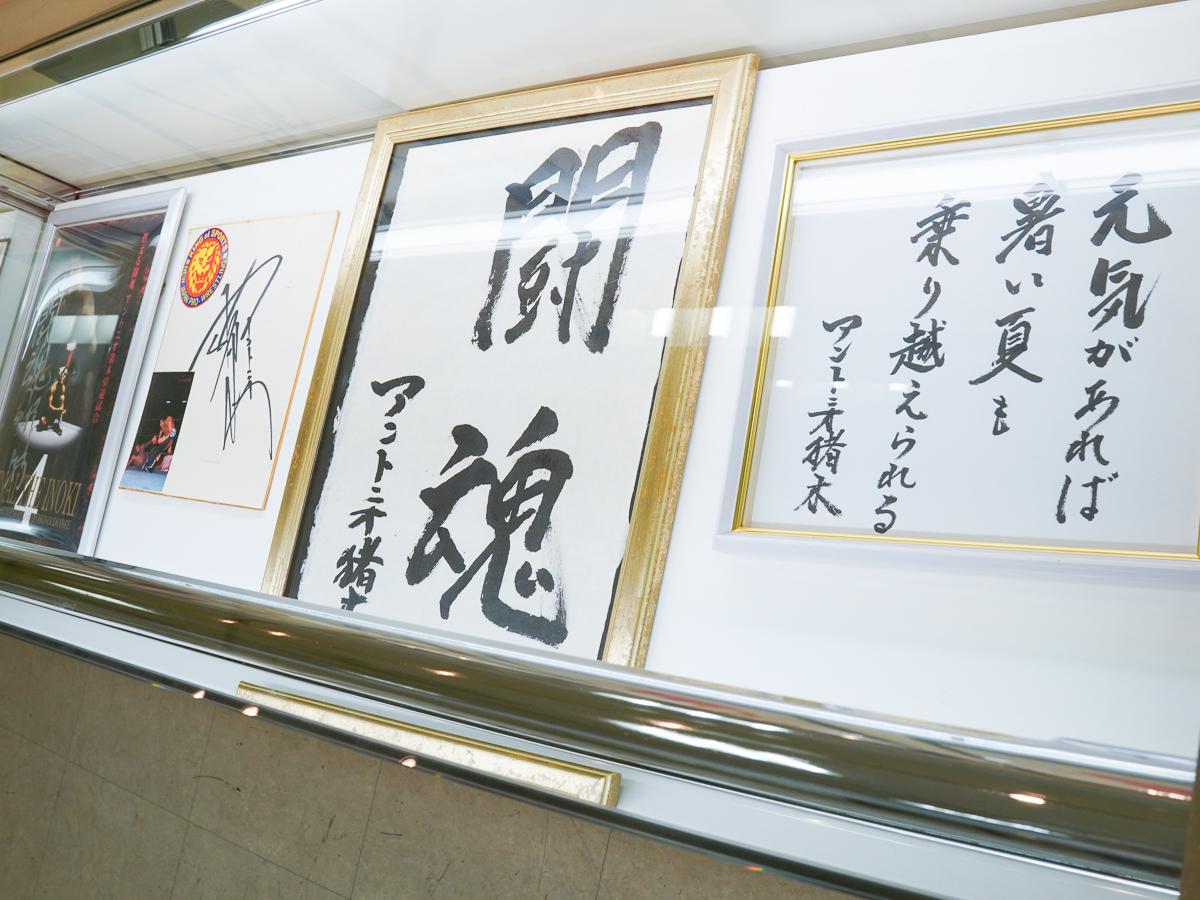 元気があれば
暑い夏も
乗り越えられる
アントニオ猪木
闘魂
アントニオ猪木
闘魂
4
INOKI
TOKYO DOME